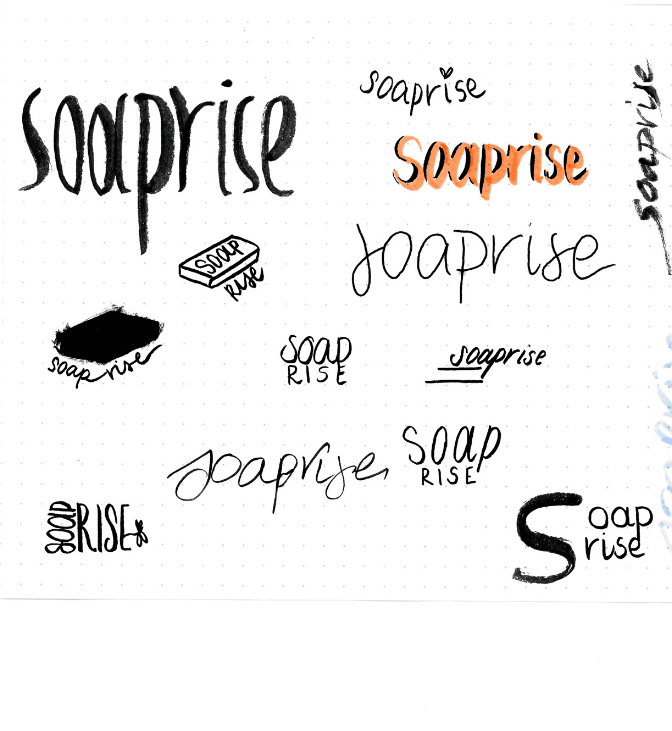 soaprise
soaprise
soaprise
soaprise
soaprise
SOAP
RISE
soaprise
SOAP
RISE
soaprise
soaprise
SOAP
RISE
SOAP
RISE
Soap
rise